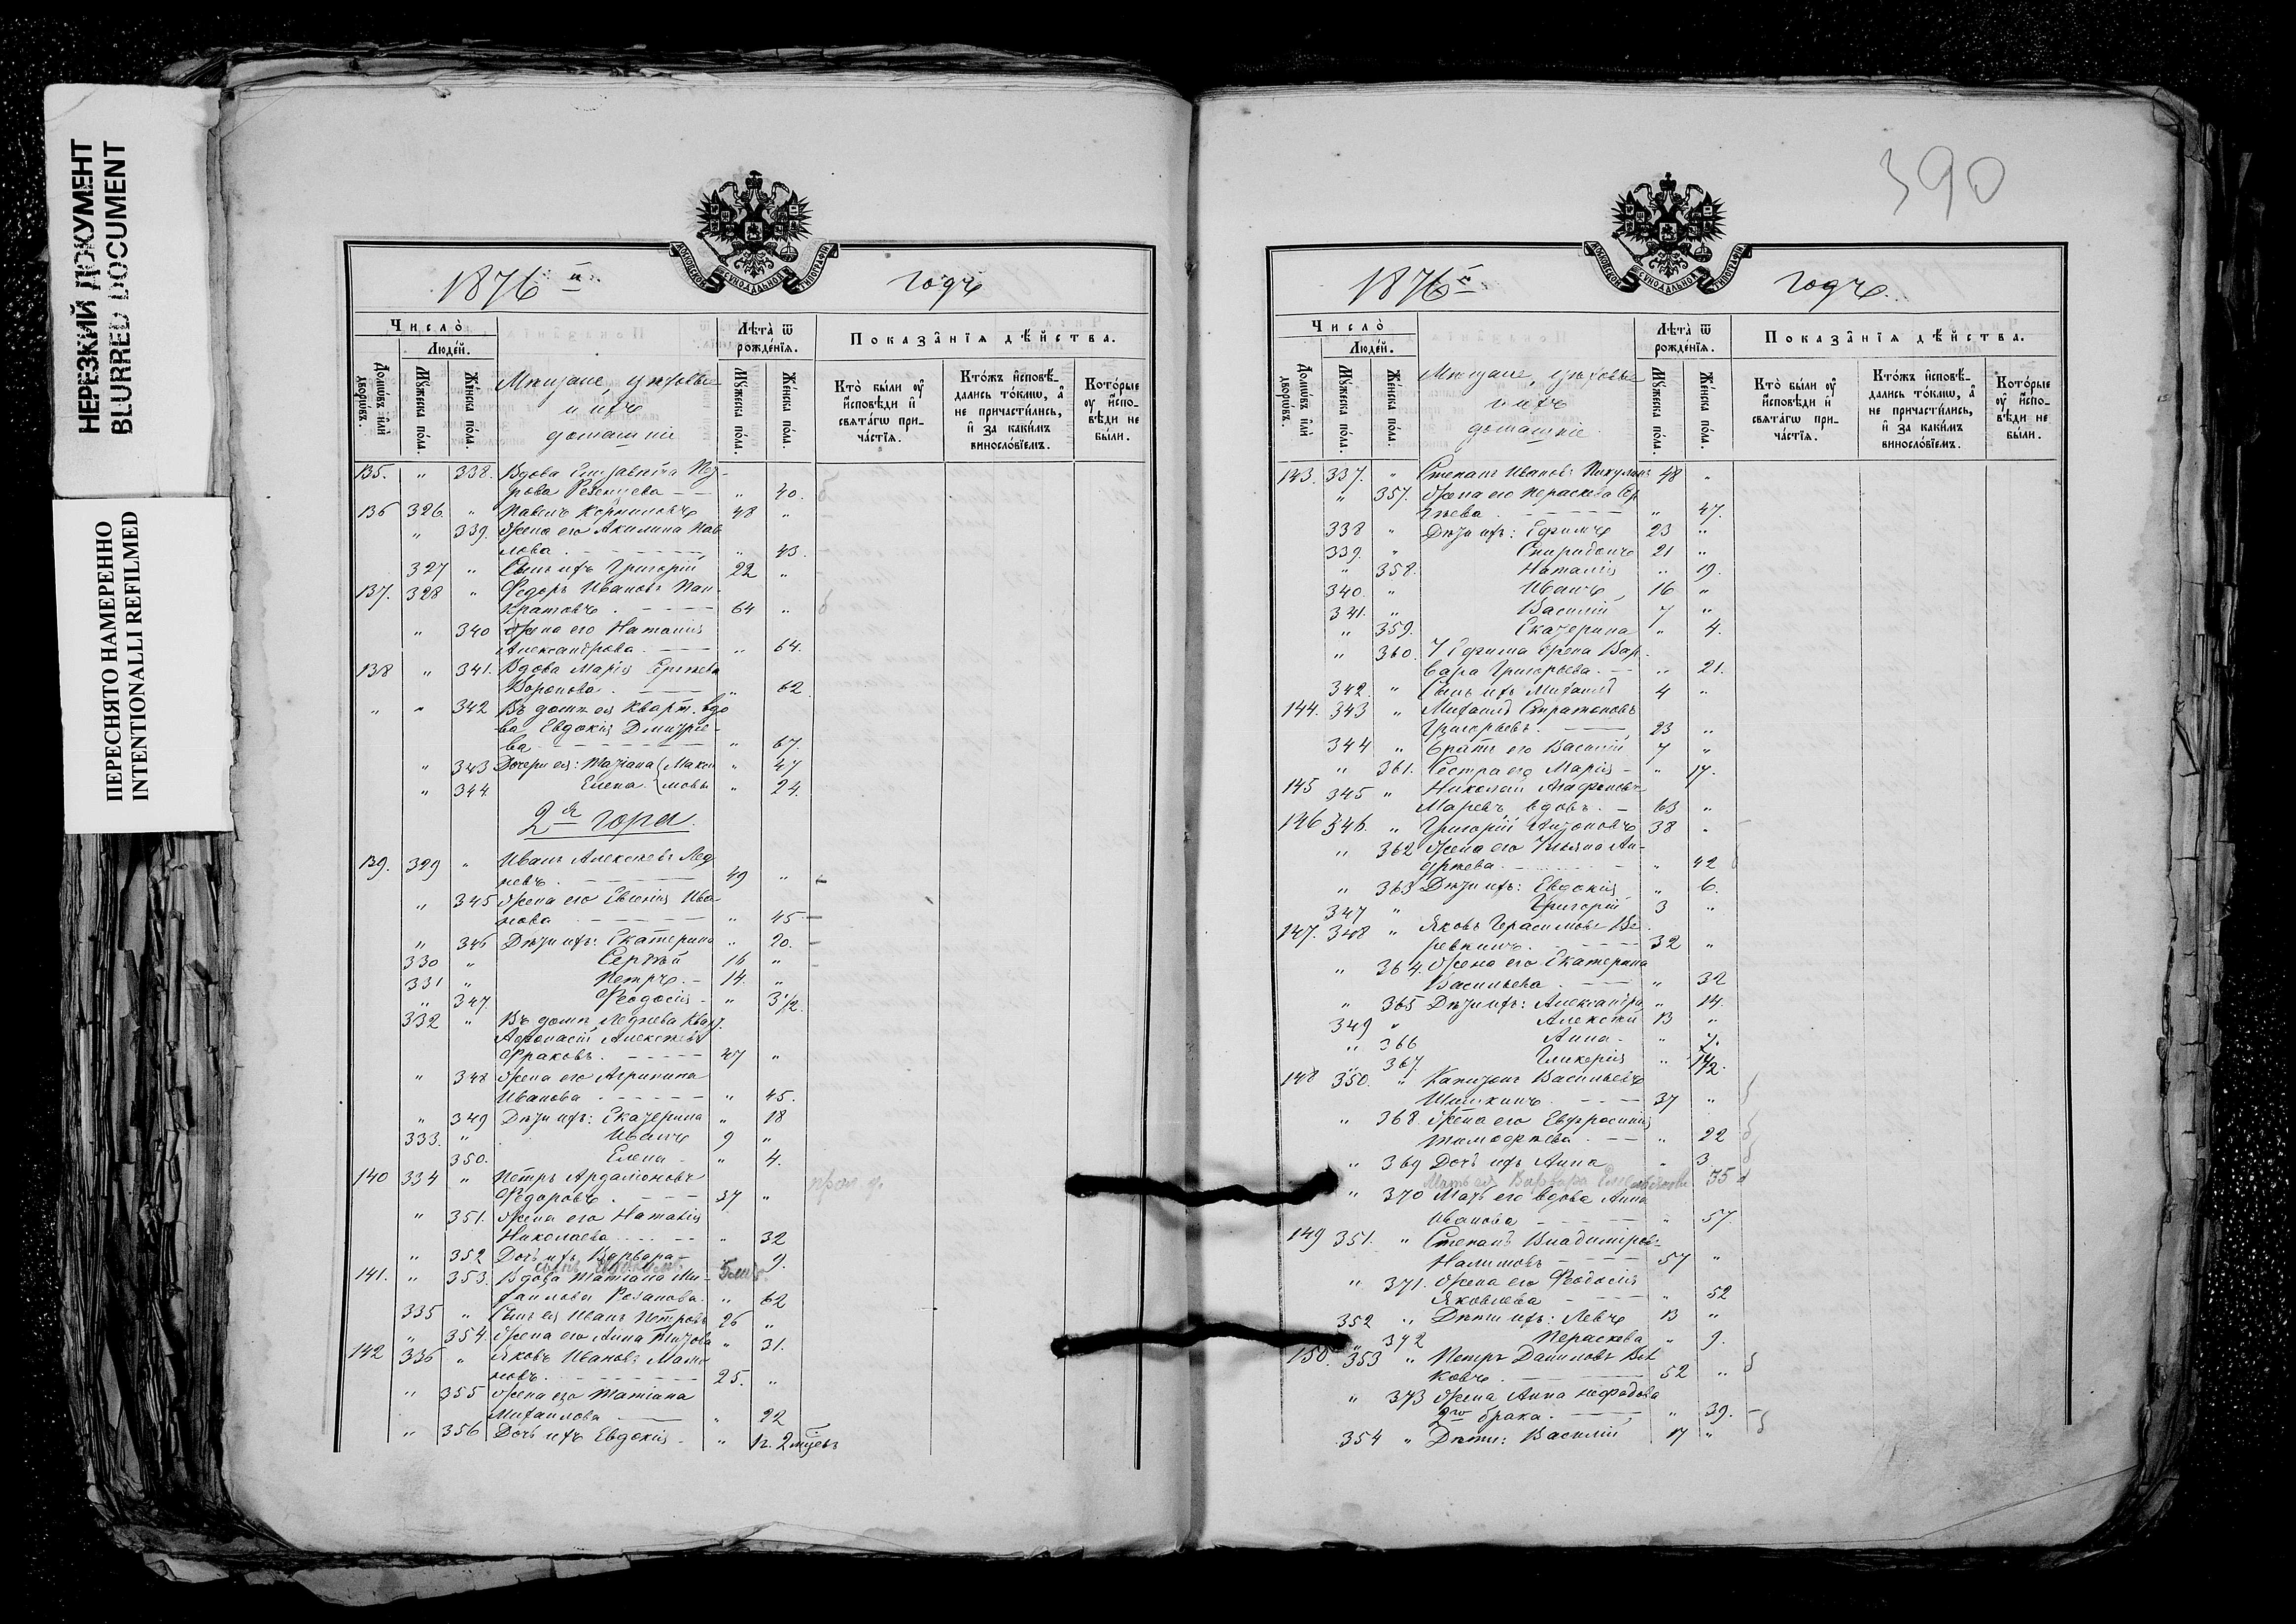 НЕРЕЗКИЙ ДОКУМЕНТ
BLURRED DOCUMENT
ПЕРЕСНЯТО НАМЕРЕННО
INTENTIONALLI REFILMED
МОСКОВСКОЙ СѴНОДАЛЬНОЙ ТИПОГРАФІИ
1876 й годъ
Число̀
Люде́й.
Домо́въ и҆лѝ дворо́въ.
Мꙋ́жеска по́ла.
Же́нска по́ла.
Мѣщане, цѣховые
и ихъ
домашніе
Лѣта̀ ѿ рожде́нїѧ.
Мꙋ́жеска по́ла.
Же́нска по́ла.
Показа̑нїѧ дѣ́йства.
Кто̀ бы́ли ᲂу҆ и҆́сповѣди и҆ свѧта́гѡ прича́стїѧ.
Кто́жъ и҆сповѣ́дались то́кмѡ, а҆ не причасти́лись, и҆ за каки́мъ виносло́вїемъ.
Кото́рые ᲂу҆ и҆́сповѣди не бы́ли.
135. " 338. Вдова Елизавета Пет-
рова Резенцева " 40.
136 326. " Павелъ Корниловъ 48 "
" 339. Жена его Акилина Пав
лова " 43.
327 " Сынъ ихъ Григорій 22 "
137. 328 " Ѳедоръ Ивановъ Пан-
кратовъ. 64 "
" 340 Жена его Наталия
Александрова. " 64.
138 " 341. Вдова Марія Сергѣева
Воронова. " 62
" " 342 Въ домѣ ея кварт. вдо
ва Евдокія Дмитріе-
ва " 67.
" 343 Дочери ея: Татіана (Макси " 47
" 344 Елена (мовы " 24.
2я гора.
139. 329 " Иванъ Алексѣевъ Лед
невъ. 49 "
" 345 Жена его Евгенія Ива
нова " 45
" 346 Дѣти ихъ: Екатерина " 20.
330 " Сергѣй 16 "
331 " Петръ. 14. "
" 347. Ѳеодосія " 3½.
332 " Въ домѣ Леднева кварт.
Афонасій Алексѣевъ
Фраковъ. 47 "
" 348 Жена его Агрипина
Иванова " 45.
" 349 Дѣти ихъ: Екатерина " 18
333. " Иванъ 9 "
350. Елена " 4.
140 334 " Петръ Ардаліоновъ
Ѳедоровъ. 37 "
" 351. Жена его Наталія
Николаева " 32
" 352 Дочь ихъ Варвара 9.
141. " 353. Вдова Татіана Ми-
хаилова Розанова. " 62
335 " Сынъ ея Иванъ Петровъ 26 "
" 354. Жена его Анна Титова " 31.
142 336 " Яковъ Ивановъ Мато
новъ. 25. "
" 355 Жена его Татіана
Михаилова " 22
" 356 Дочь ихъ Евдокія " 1г. 2 мѣсяц
390
МОСКОВСКОЙ СѴНОДАЛЬНОЙ ТИПОГРАФІИ
1876й годъ.
Число̀
Люде́й.
Домо́въ и҆лѝ дворо́въ.
Мꙋ́жеска по́ла.
Же́нска по́ла.
Мѣщане, цѣховые
и ихъ
домашніе.
Лѣта̀ ѿ рожде́нїѧ.
Мꙋ́жеска по́ла.
Же́нска по́ла.
Показа̑нїѧ дѣ́йства.
Кто̀ бы́ли ᲂу҆ и҆́сповѣди и҆ свѧта́гѡ прича́стїѧ.
Кто́жъ и҆сповѣ́дались то́кмѡ, а҆ не причасти́лись, и҆ за каки́мъ виносло́вїемъ.
Кото́рые ᲂу҆ и҆́сповѣди не бы́ли.
143. 337. " Степанъ Ивановъ Пикулинъ 48 "
" 357. Жена его Параскева Сер
гѣева " 47.
338 " Дѣти ихъ: Ефимъ 23 "
339. " Спиридонъ 21 "
" 358. Наталія " 19.
340. " Иванъ 16 "
341. " Василій 7 "
" 359. Екатерина " 4.
" 360. У Ефима жена Вар
вара Григорьева. " 21.
342. " Сынъ ихъ Михаилъ 4 "
144. 343 " Михаилъ Стратоновъ
Григорьевъ. 23 "
344 " Братъ его Василій 7 "
" 361. Сестра его Марія " 17.
145 345 " Николай Агафоновъ
Маревъ, вдовъ. 63 "
146 346. " Григорій Антоновъ 38 "
" 362 Жена его Ульяна Ан-
дрѣева. " 42
" 363 Дѣти ихъ: Евдокія " 6.
347 " Григорій 3 "
147. 348 " Яковъ Герасимовъ Ве
ревкинъ. 32 "
" 364. Жена его Екатерина
Васильева. " 32
" 365 Дѣти ихъ: Александра " 14.
349 " Алексѣй 13 "
" 366 Анна " 7.
" 367. Гликерія " 1½.
148 350. " Капитонъ Васильевъ
Шишкинъ 37 "
" 368. Жена его Евфросинія
Тимофѣева. " 22
" 369 Дочь ихъ Анна " 3
Мать ея Варвара 75
" 370 Мать его вдова Анна
Иванова " 57.
149 351. " Степанъ Владиміровъ
Налимовъ 57 "
" 371. Жена его Ѳеодосія
Яковлева " 52
352 " Дѣти ихъ: Левъ 13 "
" 372 Параскева " 9.
150. 353 " Петръ Даниловъ Вол
ковъ. 52 "
" 373 Жена Анна Нефодова
2го брака. " 39.
354 " Дѣти: Василій 17 "